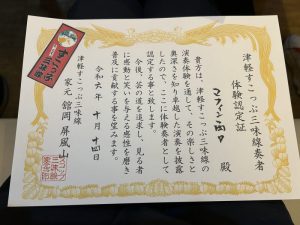 津軽すこっぷ三味線奏者
体験認定証
殿
貴方は、津軽すこっぷ三味線の
演奏体験を通して、その楽しさと
奥深さを知り卓越した演奏を披露
したので、ここに体験奏者として
認定する事と致します。
今後、芸の道を追求し、見る者
に感動と笑いを与える感性を磨き
普及に貢献する事を望みます。
令和六年 十月 十四日
津軽すこっぷ三味線
家元 舘岡 屏風山
すこっぷ
三味線